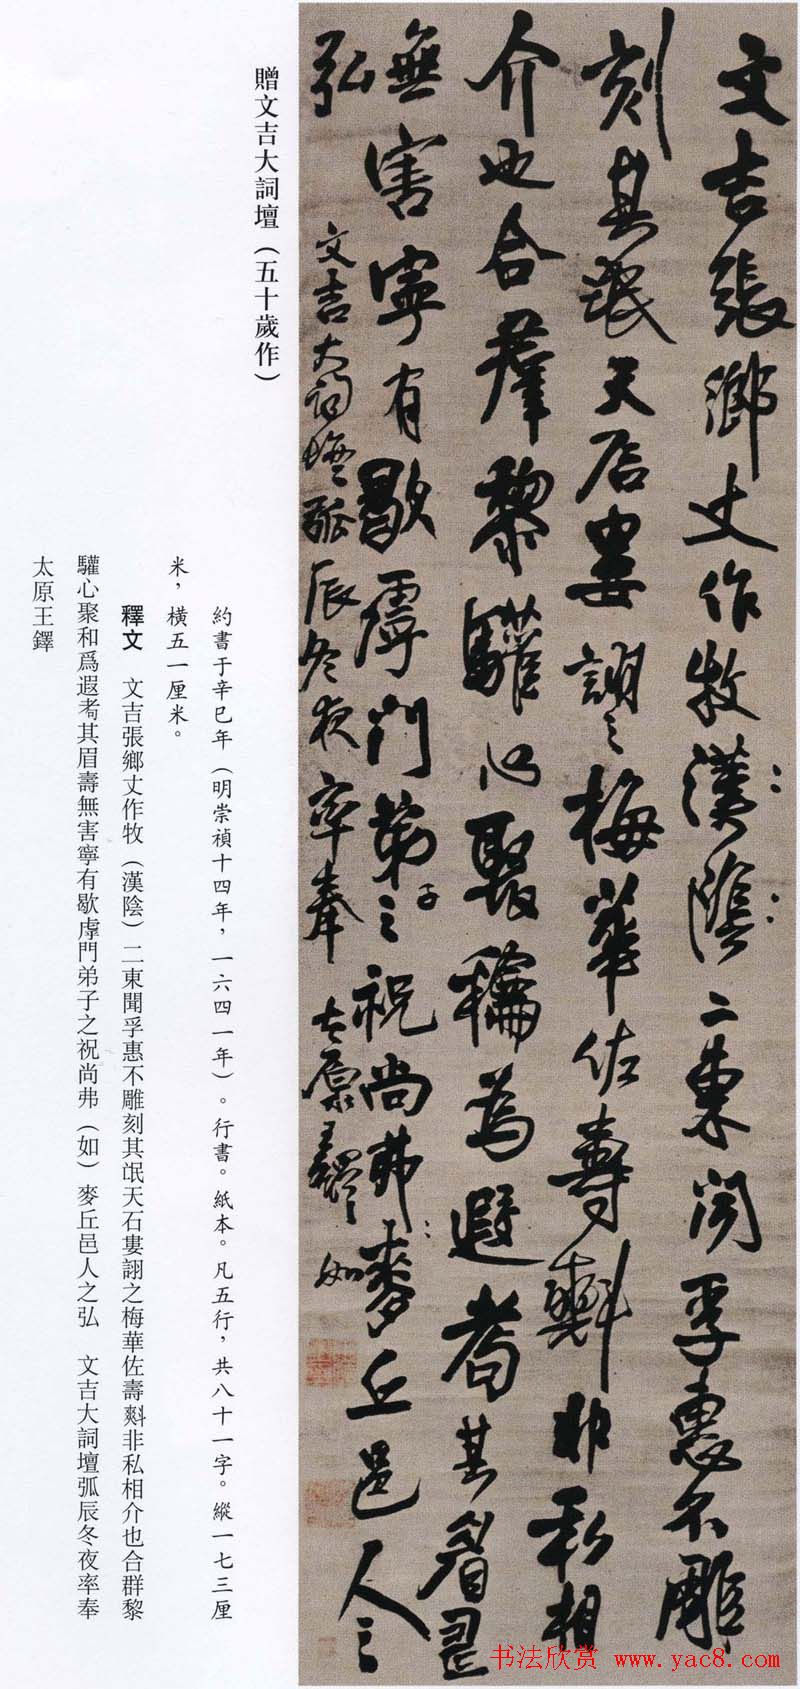 文吉張鄉丈作牧漢陰二東聞孚惠不雕
刻其氓天石婁詡之梅華佐壽非私相
介也合羣黎驩心聚龢為遐耇其眉壽
無害寧有歇虖門弟子之祝尚弗麥丘邑人之
弘 文吉大詞壇弧辰冬夜率奉 太原王鐸 如
贈文吉大詞壇（五十歲作）
約書于辛巳年（明崇禎十四年，一六四一年）。行書。紙本。凡五行，共八十一字。縱一七三厘
米，橫五一厘米。
釋文 文吉張鄉丈作牧（漢陰）二東聞孚惠不雕刻其氓天石婁詡之梅華佐壽非私相介也合群黎
驩心聚和爲遐耇其眉壽無害寧有歇虖門弟子之祝尚弗（如）麥丘邑人之弘 文吉大詞壇弧辰冬夜率奉
太原王鐸
书法欣赏 www.yac8.com